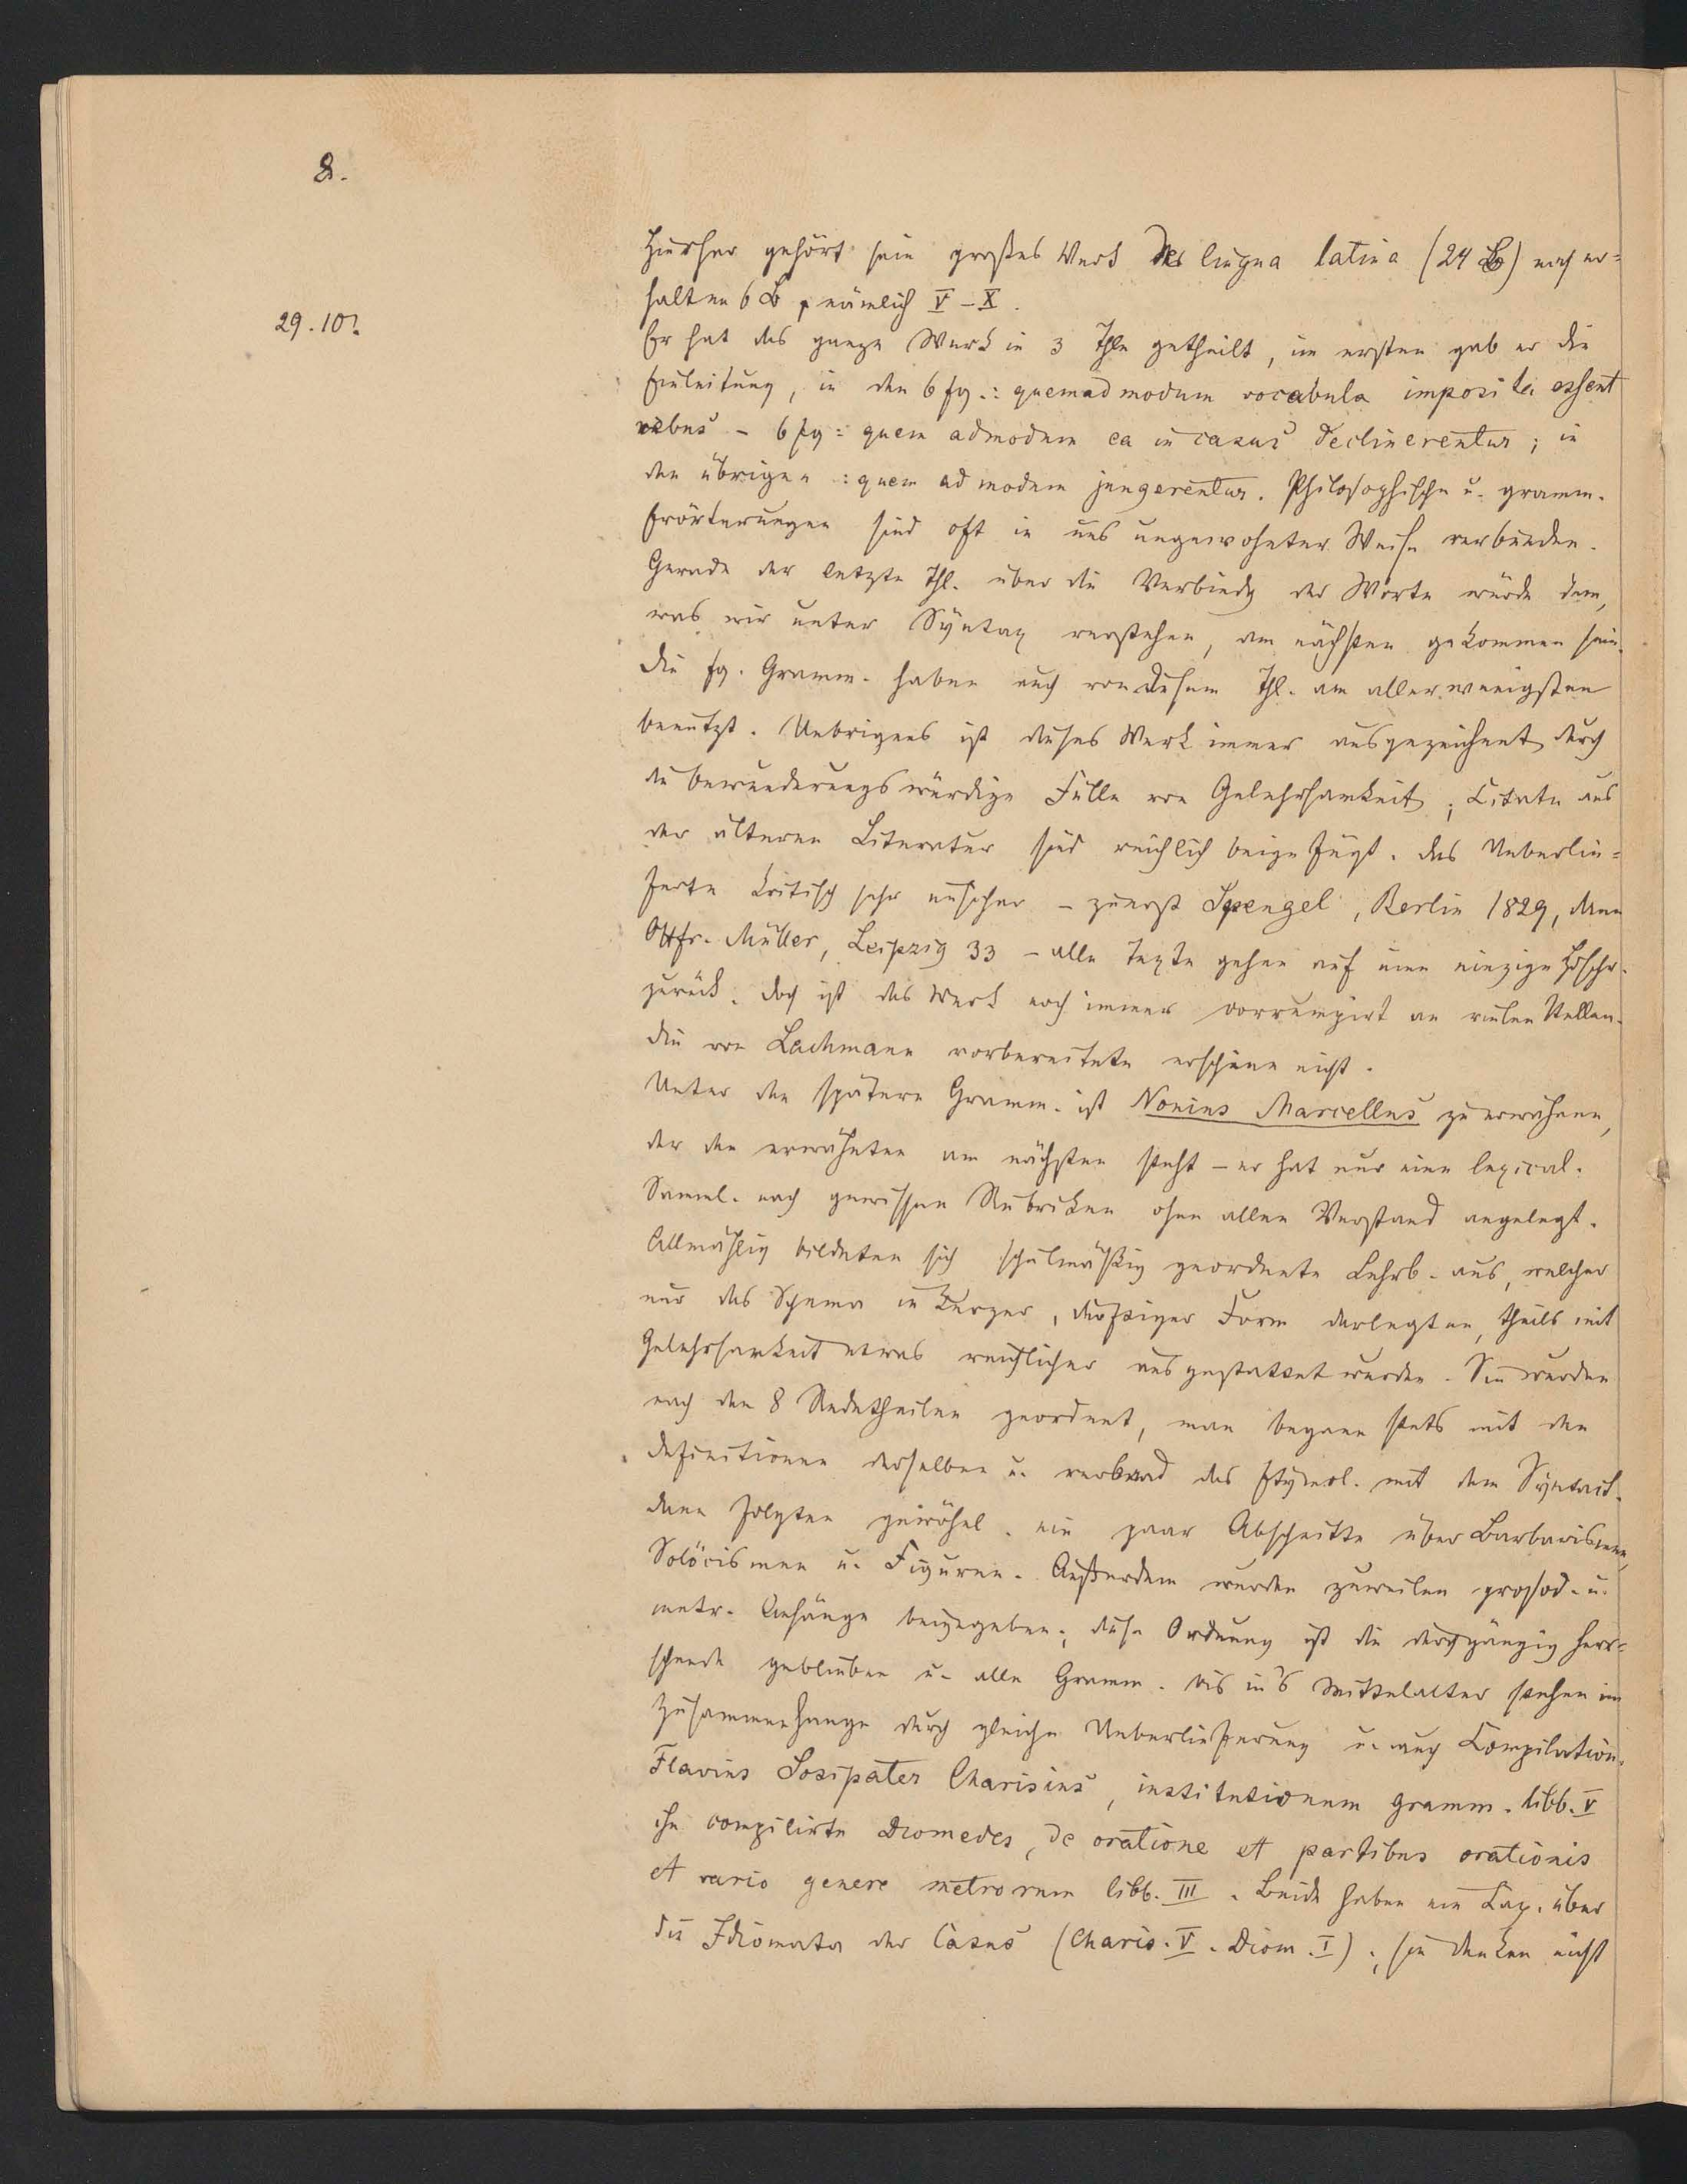 8.
Hierher gehört sein großes Werk De lingua latina (24 B) noch er=
halten 6 B, nämlich V – X.
29.10.
Er hat das ganze Werk in 3 Thle getheilt, im ersten gab er die
Einleitung, in den 6 fg.: quemadmodum vocabula imposita essent
rebus – 6 fg: quem admodum ea in casus declinerentur; in
den übrigen: quem ad modum jungerentur. Philosophische u. gramm.
Erörterungen sind oft in uns ungewohnter Weise verbunden.
Gerade der letzte Thl. über die Verbindg der Worte würde dem,
was wir unter Syntax verstehen, am nächsten gekommen sein.
Die fg. Gramm. haben auch von diesem Thl. am allerwenigsten
benutzt. Uebrigens ist dieses Werk immer ausgezeichnet durch
die bewunderungswürdige Fülle von Gelehrsamkeit; Citate aus
der älteren Literatur sind reichlich beigefügt. Das Ueberlie=
ferte kritisch sehr unsicher – zuerst Spengel, Berlin 1829, dann
Ottfr. Müller, Leipzig 33 – alle Texte gehen auf eine einzige Hdschr.
zurück. Doch ist das Werk noch immer corrumpirt an vielen Stellen.
Die von Lachmann vorbereitete erschien nicht.
Unter den spätern Gramm. ist Nonius Marcellus zu erwähnen,
der den erwähnten am nächsten steht – er hat nur eine lexical.
Samml. nach gewissen Rubriken ohne allen Verstand angelegt.
Allmählig bildeten sich schulmäßig geordnete Lehrb. aus, welche
nur das Schema in kurzer, Form darlegten, theils mit
Gelehrsamkeit etwas reichlicher ausgestattet wurden. Sie wurden
nach den 8 Redetheilen geordnet, man begann stets mit den
Definitionen derselben u. verband das Etymol. mit dem Syntact.
dann folgten gewöhnl. ein paar Abschnitte über Barbarismen,
Solöcismen u. Figuren. Außerdem wurden zuweilen prosod. u.
metr. Anhänge beigegeben; diese Ordnung ist die durchgängig herr=
schende geblieben u. alle Gramm. bis in's Mittelalter stehen im
Zusammenhange durch gleiche Ueberlieferung u. auch Compilation.
Flavius Sosipater Charisius, institutionum gramm. libb. V
ihn compilirte Diomedes, de oratione et partibus orationis
et vario genere metrorum libb. III. Beide haben ein Cap. über
die Idiomata der Casus (Charis. V. Diom. I); sie denken nicht